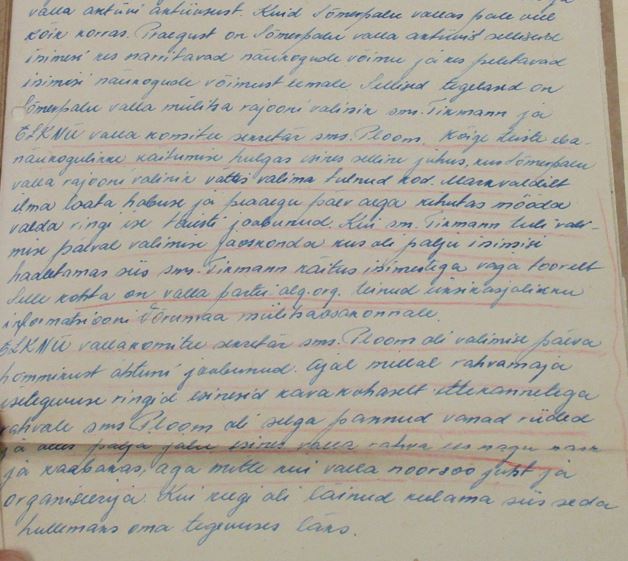 valla aktiivi aktiivsust. Kuid Sõmerpalu vallas pole veel
kõik korras. Praegust on Sõmerpalu valla aktiivis selliseid
inimesi kes narritavad nõukogude võimu ja kes peletavad
inimesi nõukogude võimust eemale. Sellised tegelased on
Sõmerpalu valla miilitsa rajooni volinik sms. Tikmann ja
ELKNÜ valla komitee sekretär sms. Ploom. Kõige teiste eba-
nõukogulikke käitumise hulgas esines selline juhus, kus Sõmerpalu
valla rajooni volinik võttis valima tulnud kod. Markvaldilt
ilma loata hobuse ja peaaegu päev aega kihutas mööda
valda ringi ise täiesti joobunud. Kui sm. Tikmann tuli vali-
mise päeval valimise jaoskonda kus oli palju inimesi
hääletamas siis sms. Tikmann käitus inimestega väga toorelt
Selle kohta on valla partei alg.org. teinud üksikasjalikku
informatsiooni Võrumaa miilitsaosakonnale.
ELKNÜ vallakomitee sekretär sms. Ploom oli valimise päeva
hommikust õhtuni joobunud. Ajal millal rahvamaja
isetegevuse ringid esinesid kavakohaselt ettekannetega
rahvale sms. Ploom oli selga pannud vanad riided
ja olles palja jalu esines valla rahva ees nagu
ja kaabakas, aga mitte kui valla noorsoo juht ja
organiseerija. Kui keegi oli läinud keelama siis seda
hullemaks oma tegevuses läks.